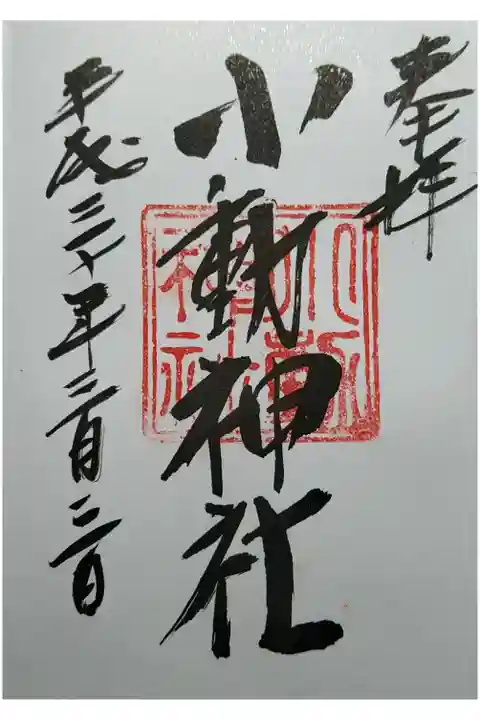 奉拝
小動神社
平成三十年三月二日